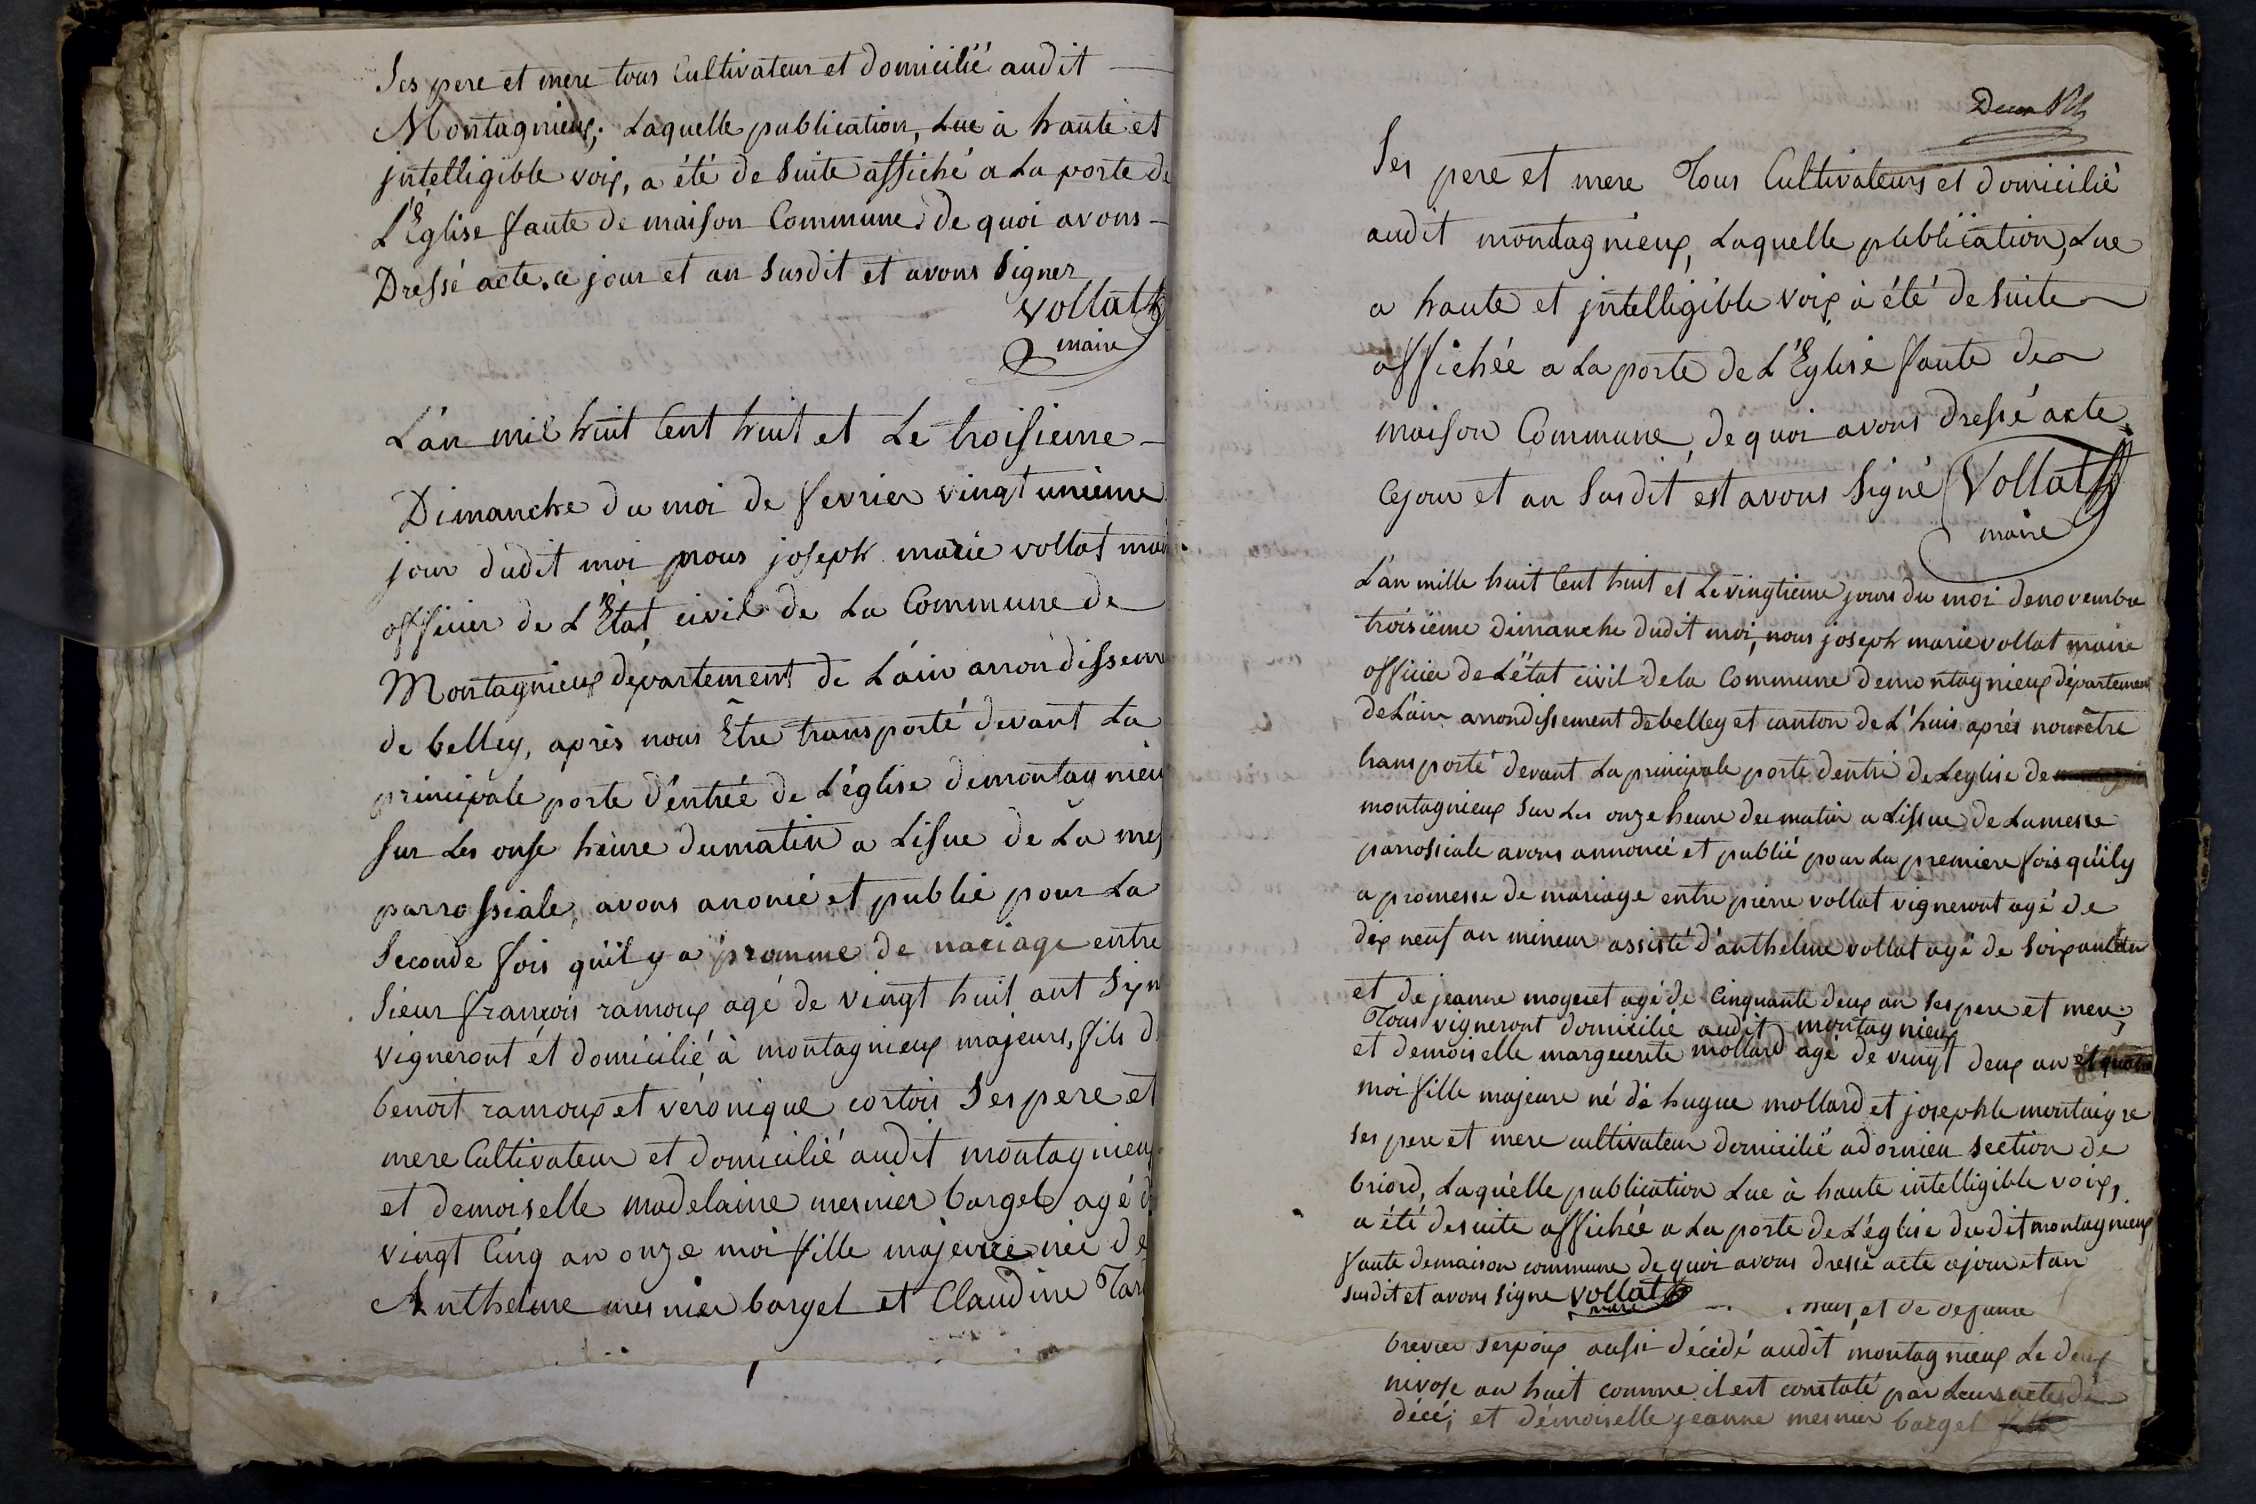 Ses pere et mere tous Cultivateur et domicilié audit
Montagnieux; Laquelle publication, Lue à haute et
jntelligible voix, a été de Suite affiché a La porte de
L'Eglise faute de maison Commune de quoi avons
Dressé acte. ce jour et an Susdit et avons Signer
Vollat
maire
L'an mil huit Cent huit et Le troisieme
Dimanche du moi de fevrier vingt unieme
jour dudit moi nous joseph marie vollat mai
officier de L'Etat civil de La Commune de
Montagnieux département de L'ain arrondisseme
de belley, après nous Etre transporté devant La
principale porte d'entrée de L'église demontagnieu
sur Les onse heure dumatin a Lisue de La mes
parrossiale, avons anoncé et publié pour La
Seconde fois qu'il y a promme de mariage entre
Sieur françois ramoux agé de vingt huit ant Six
vigneront et domicilié à montagnieux majeurs, fils d
benoit ramoux et véronique cortois Ses pere et
mere Cultivateur et domicilié audit montagnieux
et demoiselle madelaine mesnier bargel agé d
vingt Cinq an onze moi fille majeure née de
Anthelme mesnier bargel et Claudine Tar
Ses pere et mere Tous Cultivateurs et domicilié
audit montagnieux, Laquelle publication, Lue
a haute et jntelligible voix à été de Suite
affichée a La porte de L'Eglise faute de
maison Commune, de quoi avons dressé acte.
Cejour et an Susdit est avons Signé Vollat
maire
L'an mille huit Cent huit et Le vingtieme jours du moi denovembre
troisieme Dimanche dudit moi, nous joseph marie vollat maire
officier de L'état civil dela Commune demontagnieux département
deL'ain arrondissement debelley et canton de L'huis après nous être
transporté devant La principale porte d'entré de Léglise de
montagnieux Sur Les onze heure du matin a Lissue de Lamesse
parrossiale avons annoncé et publié pour La premiere fois qu'ily
a promesse de mariage entre pierre vollat vigneront agé de
dix neuf an mineur assisté d'anthelme vollat agé de Soixante an
et de jeanne moyeret agé de Cinquante deux an Ses pere et mere,
Tous vigneront domicilié audit montagnieux
et demoiselle marguerite mollard agé de vingt deux an et quatre
moi fille majeure né de hugue mollard et josephte montaigre
ses pere et mere cultivateur domicilié adornieu section de
briord, Laquelle publication Lue à haute intelligible voix,
a été desuite affichée a La porte de L'église du dit montagnieux
faute demaison commune de quoi avons dressé acte cejour et an
susdit et avons signe Vollat
maire
et de dejeanne
brevier Sespoux aussi décédé audit montagnieux Le deux
nivose an huit comme il est constaté par Leurs actes de
décé; et démoiselle jeanne mesnier bargel